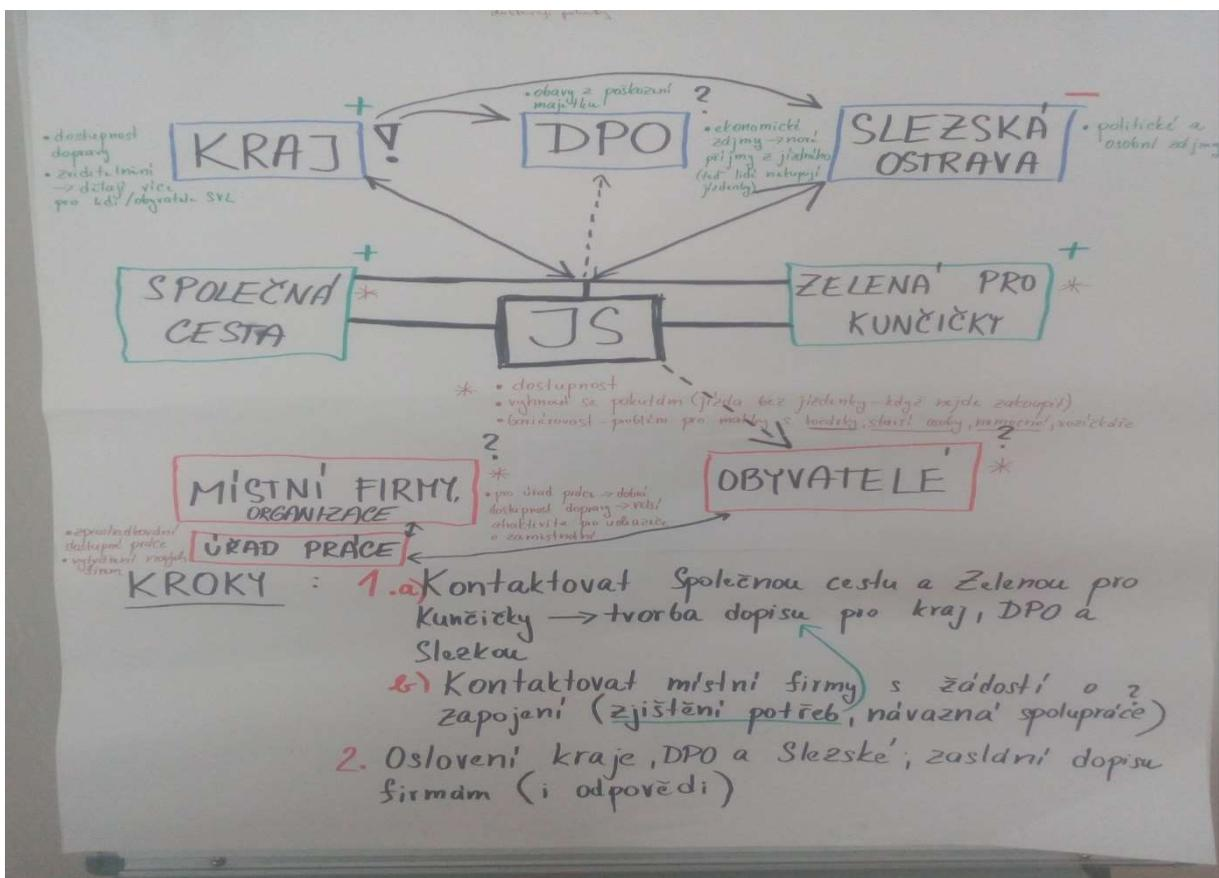 +
KRAJ !
• dostupnost
dopravy
• zviditelnění
→ dělají více
pro lidi/obyvatele SVL
• obavy z poškození
majetku
?
DPO
• ekonomické
zájmy → nové
příjmy z jízdného
(teď lidi nekupují
jízdenky)
−
SLEZSKÁ
OSTRAVA
• politické a
osobní zájmy
+
SPOLEČNÁ *
CESTA
JS
+
ZELENÁ PRO *
KUNČIČKY
* • dostupnost
• vyhnout se pokutám (jízda bez jízdenky - když nejde zakoupit)
• bariérovost - problém pro matky s kočárky, starší osoby, nemocné, vozíčkáře
?
*
MÍSTNÍ FIRMY,
ORGANIZACE
• pro úřad práce → dobrá
dostupnost dopravy → větší
atraktivita pro uchazeče
o zaměstnání
?
OBYVATELÉ *
• zprostředkování
dostupné práce
• vytváření nových
firem
ÚŘAD PRÁCE
KROKY : 1.a) Kontaktovat Společnou cestu a Zelenou pro
Kunčičky → tvorba dopisu pro kraj, DPO a
Slezkou
b) Kontaktovat místní firmy s žádostí o ?
zapojení (zjištění potřeb, návazná spolupráce)
2. Oslovení kraje, DPO a Slezské; zaslání dopisu
firmám (i odpovědi)